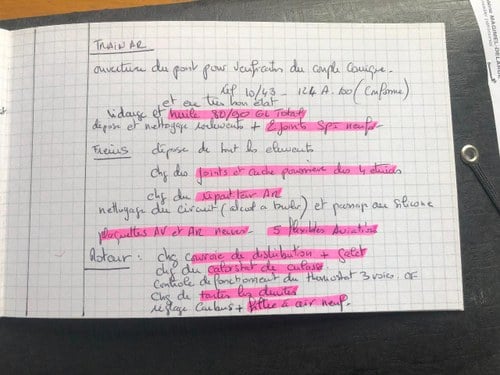 TRAIN AR
ouverture du pont pour verification du couple conique.
Ref 10/43 - 124 A. 100 (conforme)
et en très bon état
Vidange et huile 80/90 GL Total
depose et nettoyage roulements + 2 joints Spi neufs
Freins depose de tout les elements
chg des joints et cache poussière des 4 etriers
chg du repartiteur AR
nettoyage du circuit (alcool a bruler) et passage au silicone
plaquettes AV et AR neuves 5 flexibles Aviation
Moteur : chg courroie de distribution + galet
chg du calorstat de culasse
controle de fonctionement du thermostat 3 voies. OK
chg de toutes les durites
reglage Carbus + filtre à air neuf.